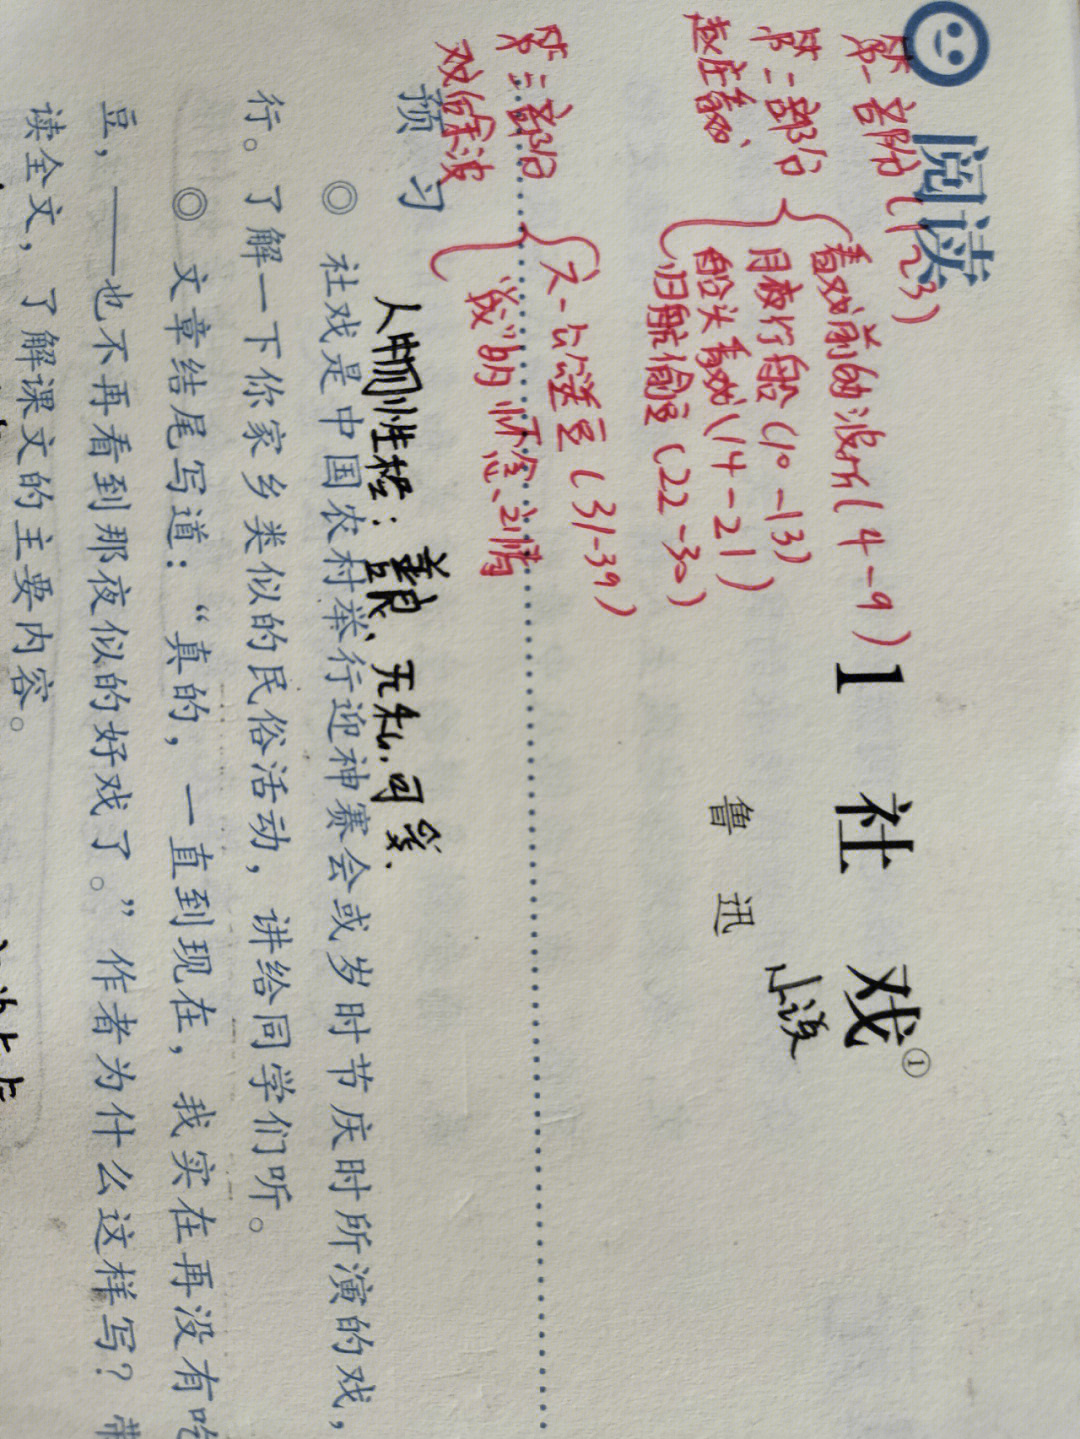 阅读
第一部分(1~3)
看戏前的波折(4-9)
第二部分
月夜行船(10-13)
赵庄看戏
船头看戏(14-21)
归航偷豆(22-30)
1 社戏①
小说
鲁迅
第三部分
戏余波
六一公送豆(31-39)
“我”的怀念之情
预习
人物性格:善良、无私、可亲.
◎ 社戏是中国农村举行迎神赛会或岁时节庆时所演的戏,
行。了解一下你家乡类似的民俗活动,讲给同学们听。
◎ 文章结尾写道:“真的,一直到现在,我实在再没有吃
豆,——也不再看到那夜似的好戏了。”作者为什么这样写?带
读全文,了解课文的主要内容。